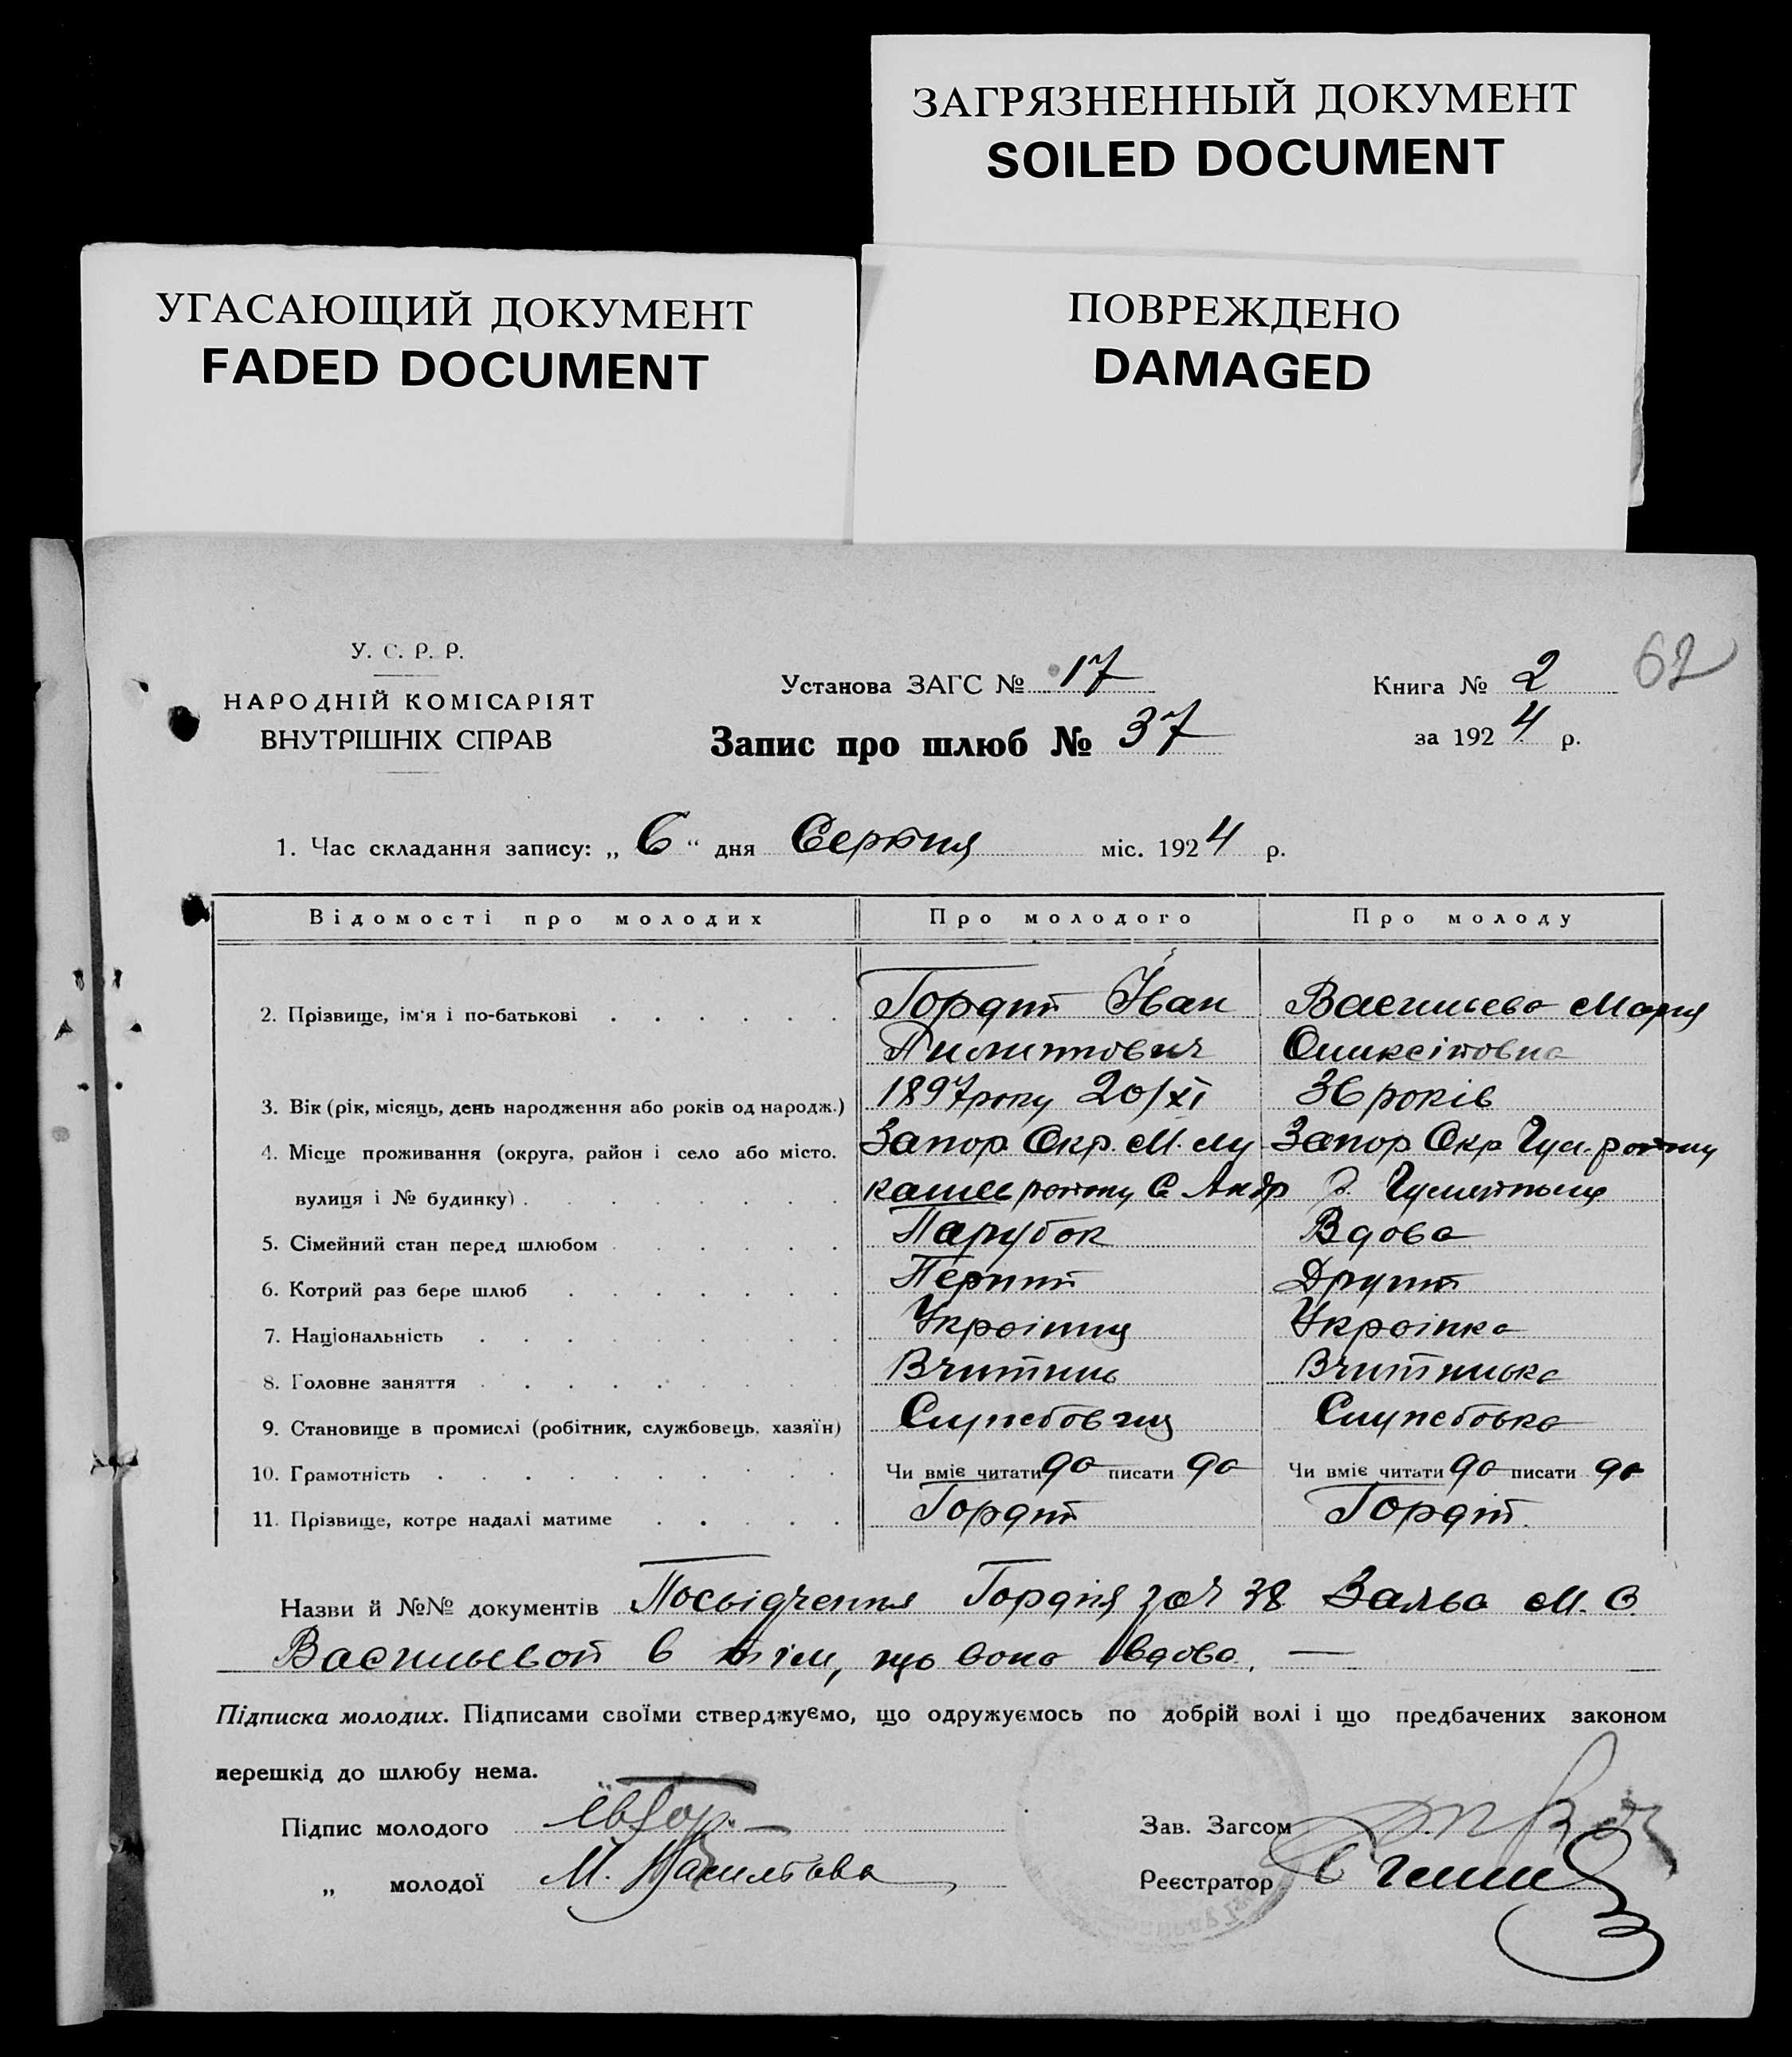 ЗАГРЯЗНЕННЫЙ ДОКУМЕНТ
SOILED DOCUMENT
УГАСАЮЩИЙ ДОКУМЕНТ
FADED DOCUMENT
ПОВРЕЖДЕНО
DAMAGED
62
У. С. Р. Р.
НАРОДНІЙ КОМІСАРІЯТ
ВНУТРІШНІХ СПРАВ
Установа ЗАГС № 17
Запис про шлюб № 37
Книга № 2
за 1924 р.
1. Час складання запису: „ 6 “ дня Серпня міс. 1924 р.
Відомості про молодих Про молодого Про молоду
2. Прізвище, ім'я і по-батькові Гордій Іван Васильева Мария
Пилиппович
3. Вік (рік, місяць, день народження або років од народж.) 1897 року 20/XI 36 років
4. Місце проживання (округа, район і село або місто, Запор. Окр. М. Лу Запор Окр Гул. району
вулиця і № будинку) кашев району С Андр
5. Сімейний стан перед шлюбом Парубок Вдова
6. Котрий раз бере шлюб Перший Другий
7. Національність Украінец Украінка
8. Головне заняття Вчитиль Вчителька
9. Становище в промислі (робітник, службовець, хазяїн) Служебовец Служебовка
10. Грамотність Чи вміє читати да писати да Чи вміє читати да писати да
11. Прізвище, котре надалі матиме Гордий Гордій.
Назви й №№ документів Посвідчення Гордія за ч 38 М. О.
Васильевой в тім, що вона вдова. —
Підписка молодих. Підписами своїми стверджуємо, що одружуємось по добрій волі і що предбачених законом
перешкід до шлюбу нема.
Підпис молодого
„ молодої М. Васильева
Зав. Загсом
Реєстратор